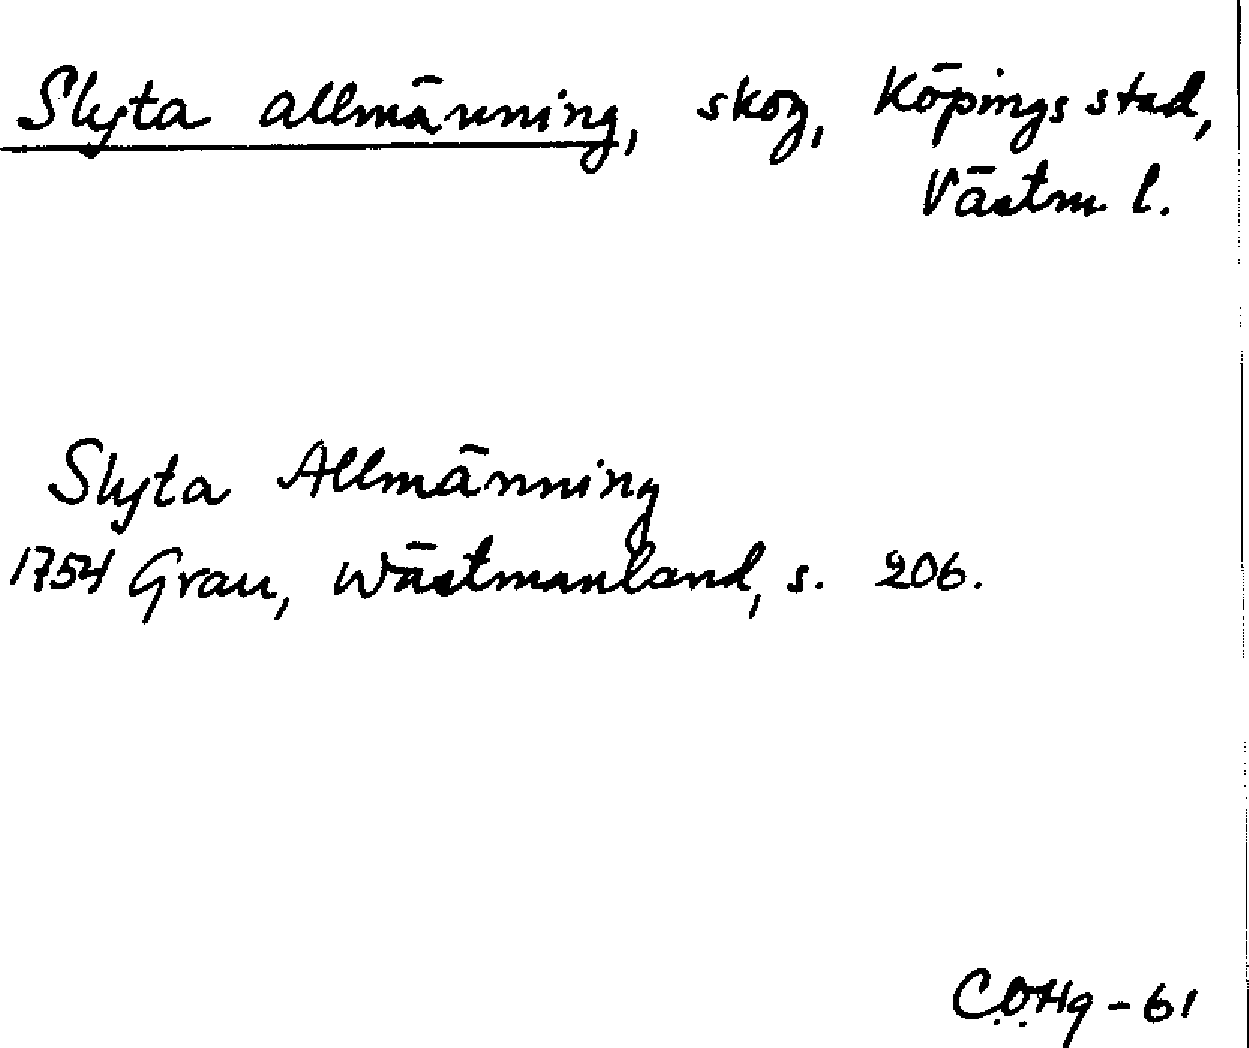 Slyta allmänning, skog, Köpings stad,
Västm. l.
Slyta Allmänning
1754 Grau, Wästmanland, s. 206.
C.O.Hg - 61